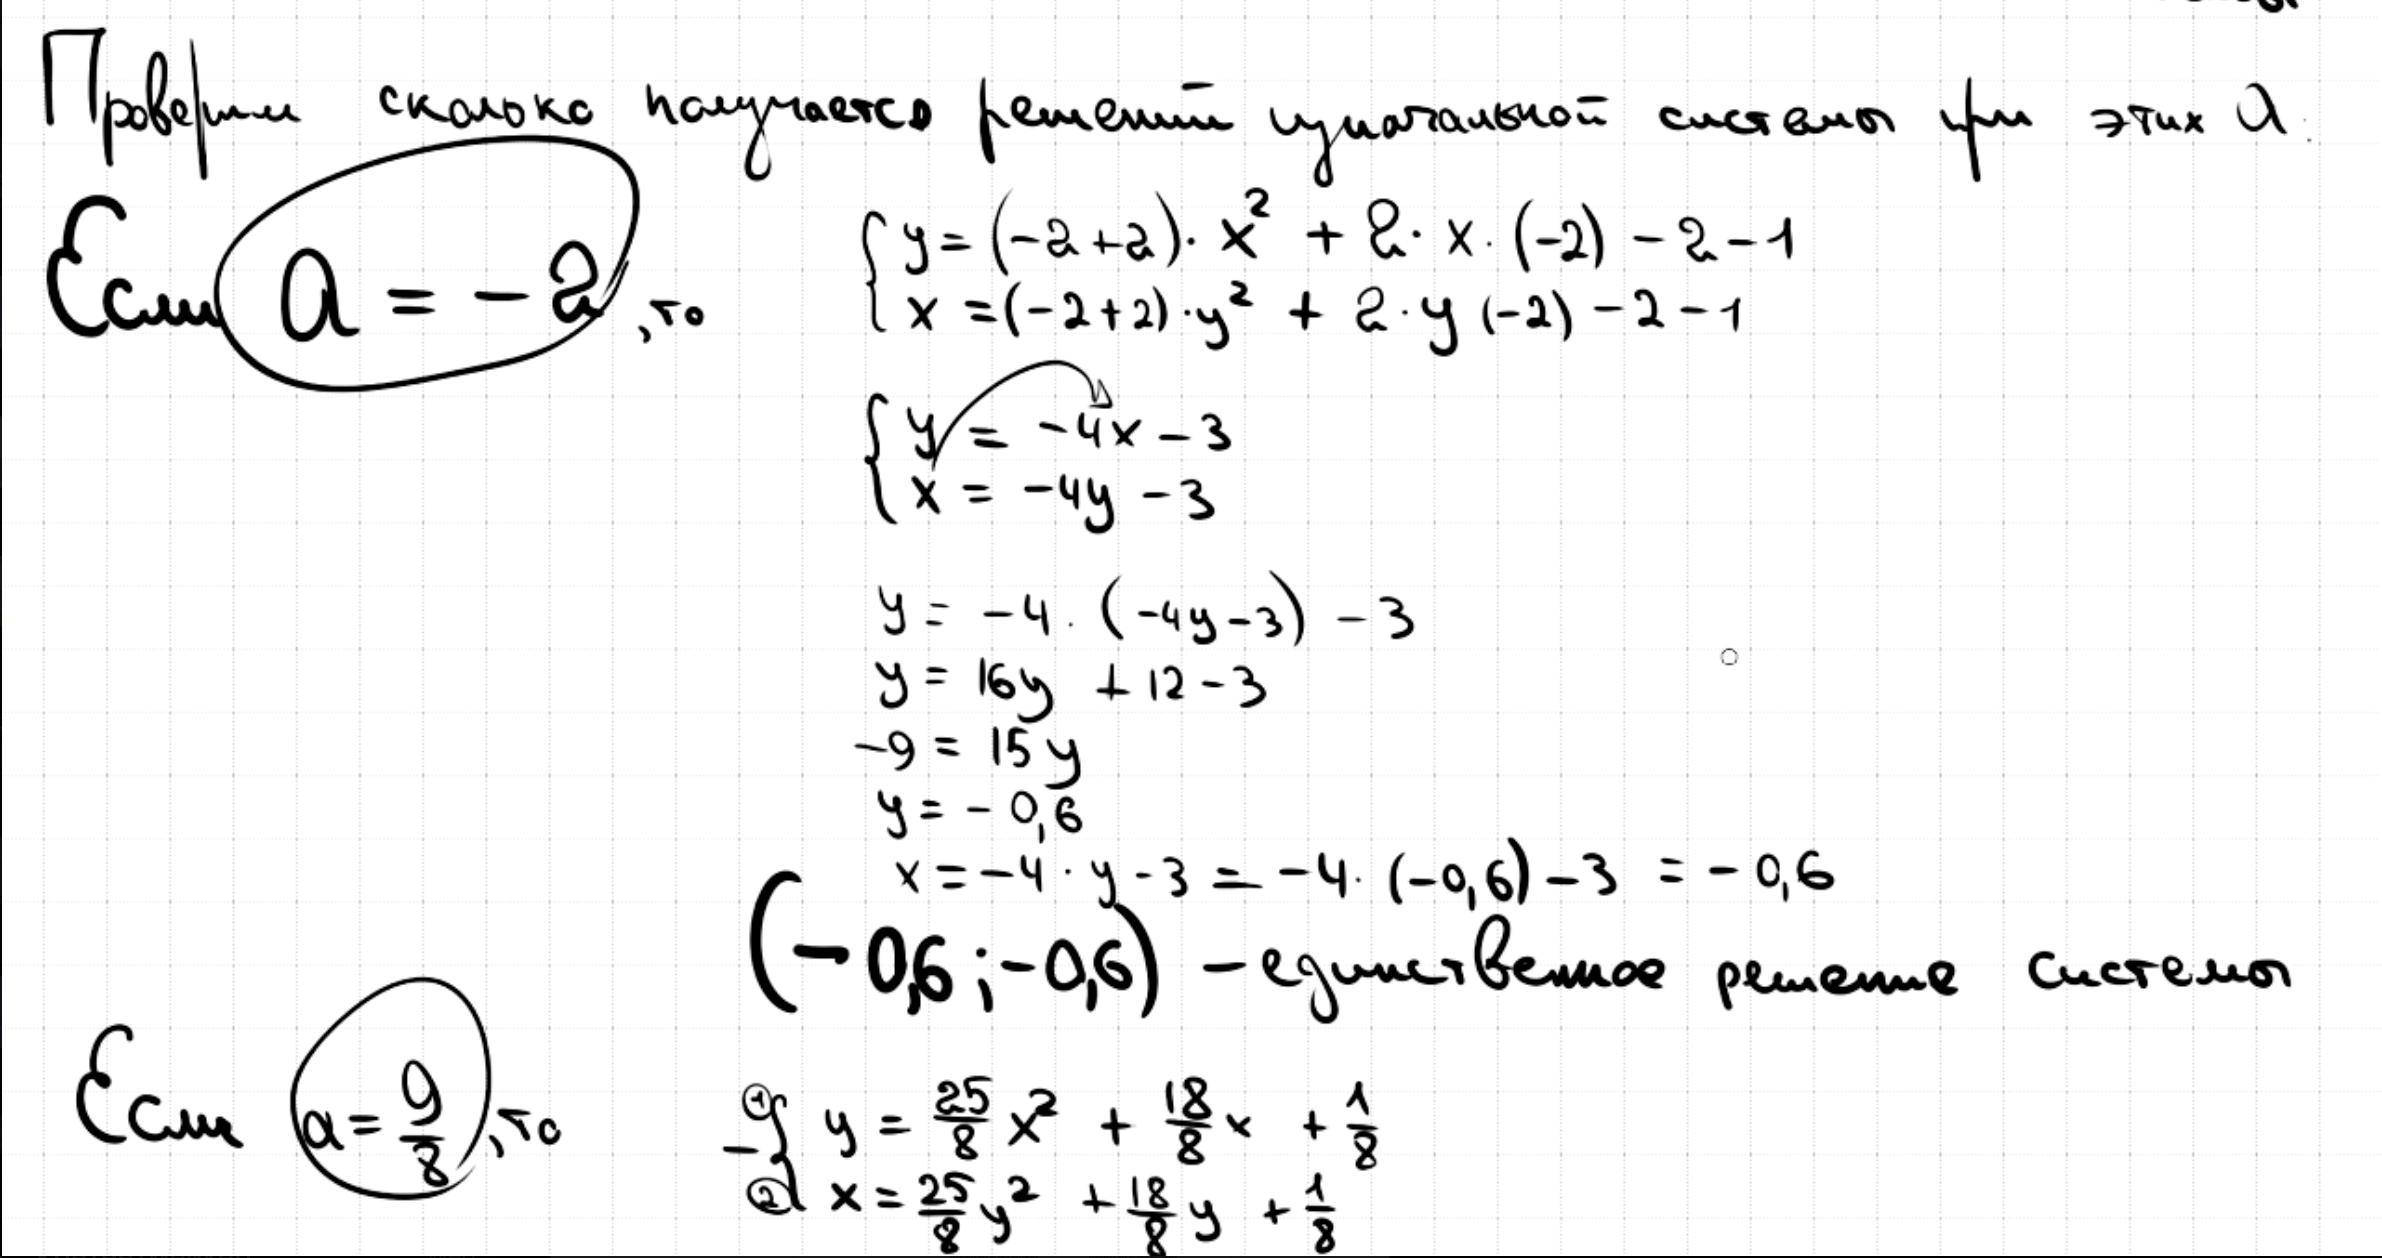 Проверим сколько получается решений изначальной системы при этих a.
Если a = -2, то
{ y = (-2+2)· x² + 2· x· (-2) - 2 - 1
{ x = (-2+2)·y² + 2·y (-2) - 2 - 1
{ y = -4x - 3
{ x = -4y - 3
y = -4· (-4y-3) - 3
y = 16y + 12 - 3
-9 = 15y
y = - 0,6
x = -4 · y - 3 = -4· (-0,6) - 3 = - 0,6
(-0,6 ; -0,6) - единственное решение системы
Если a = 9/8, то
① { y = 25/8 x² + 18/8 x + 1/8
-
② { x = 25/8 y² + 18/8 y + 1/8